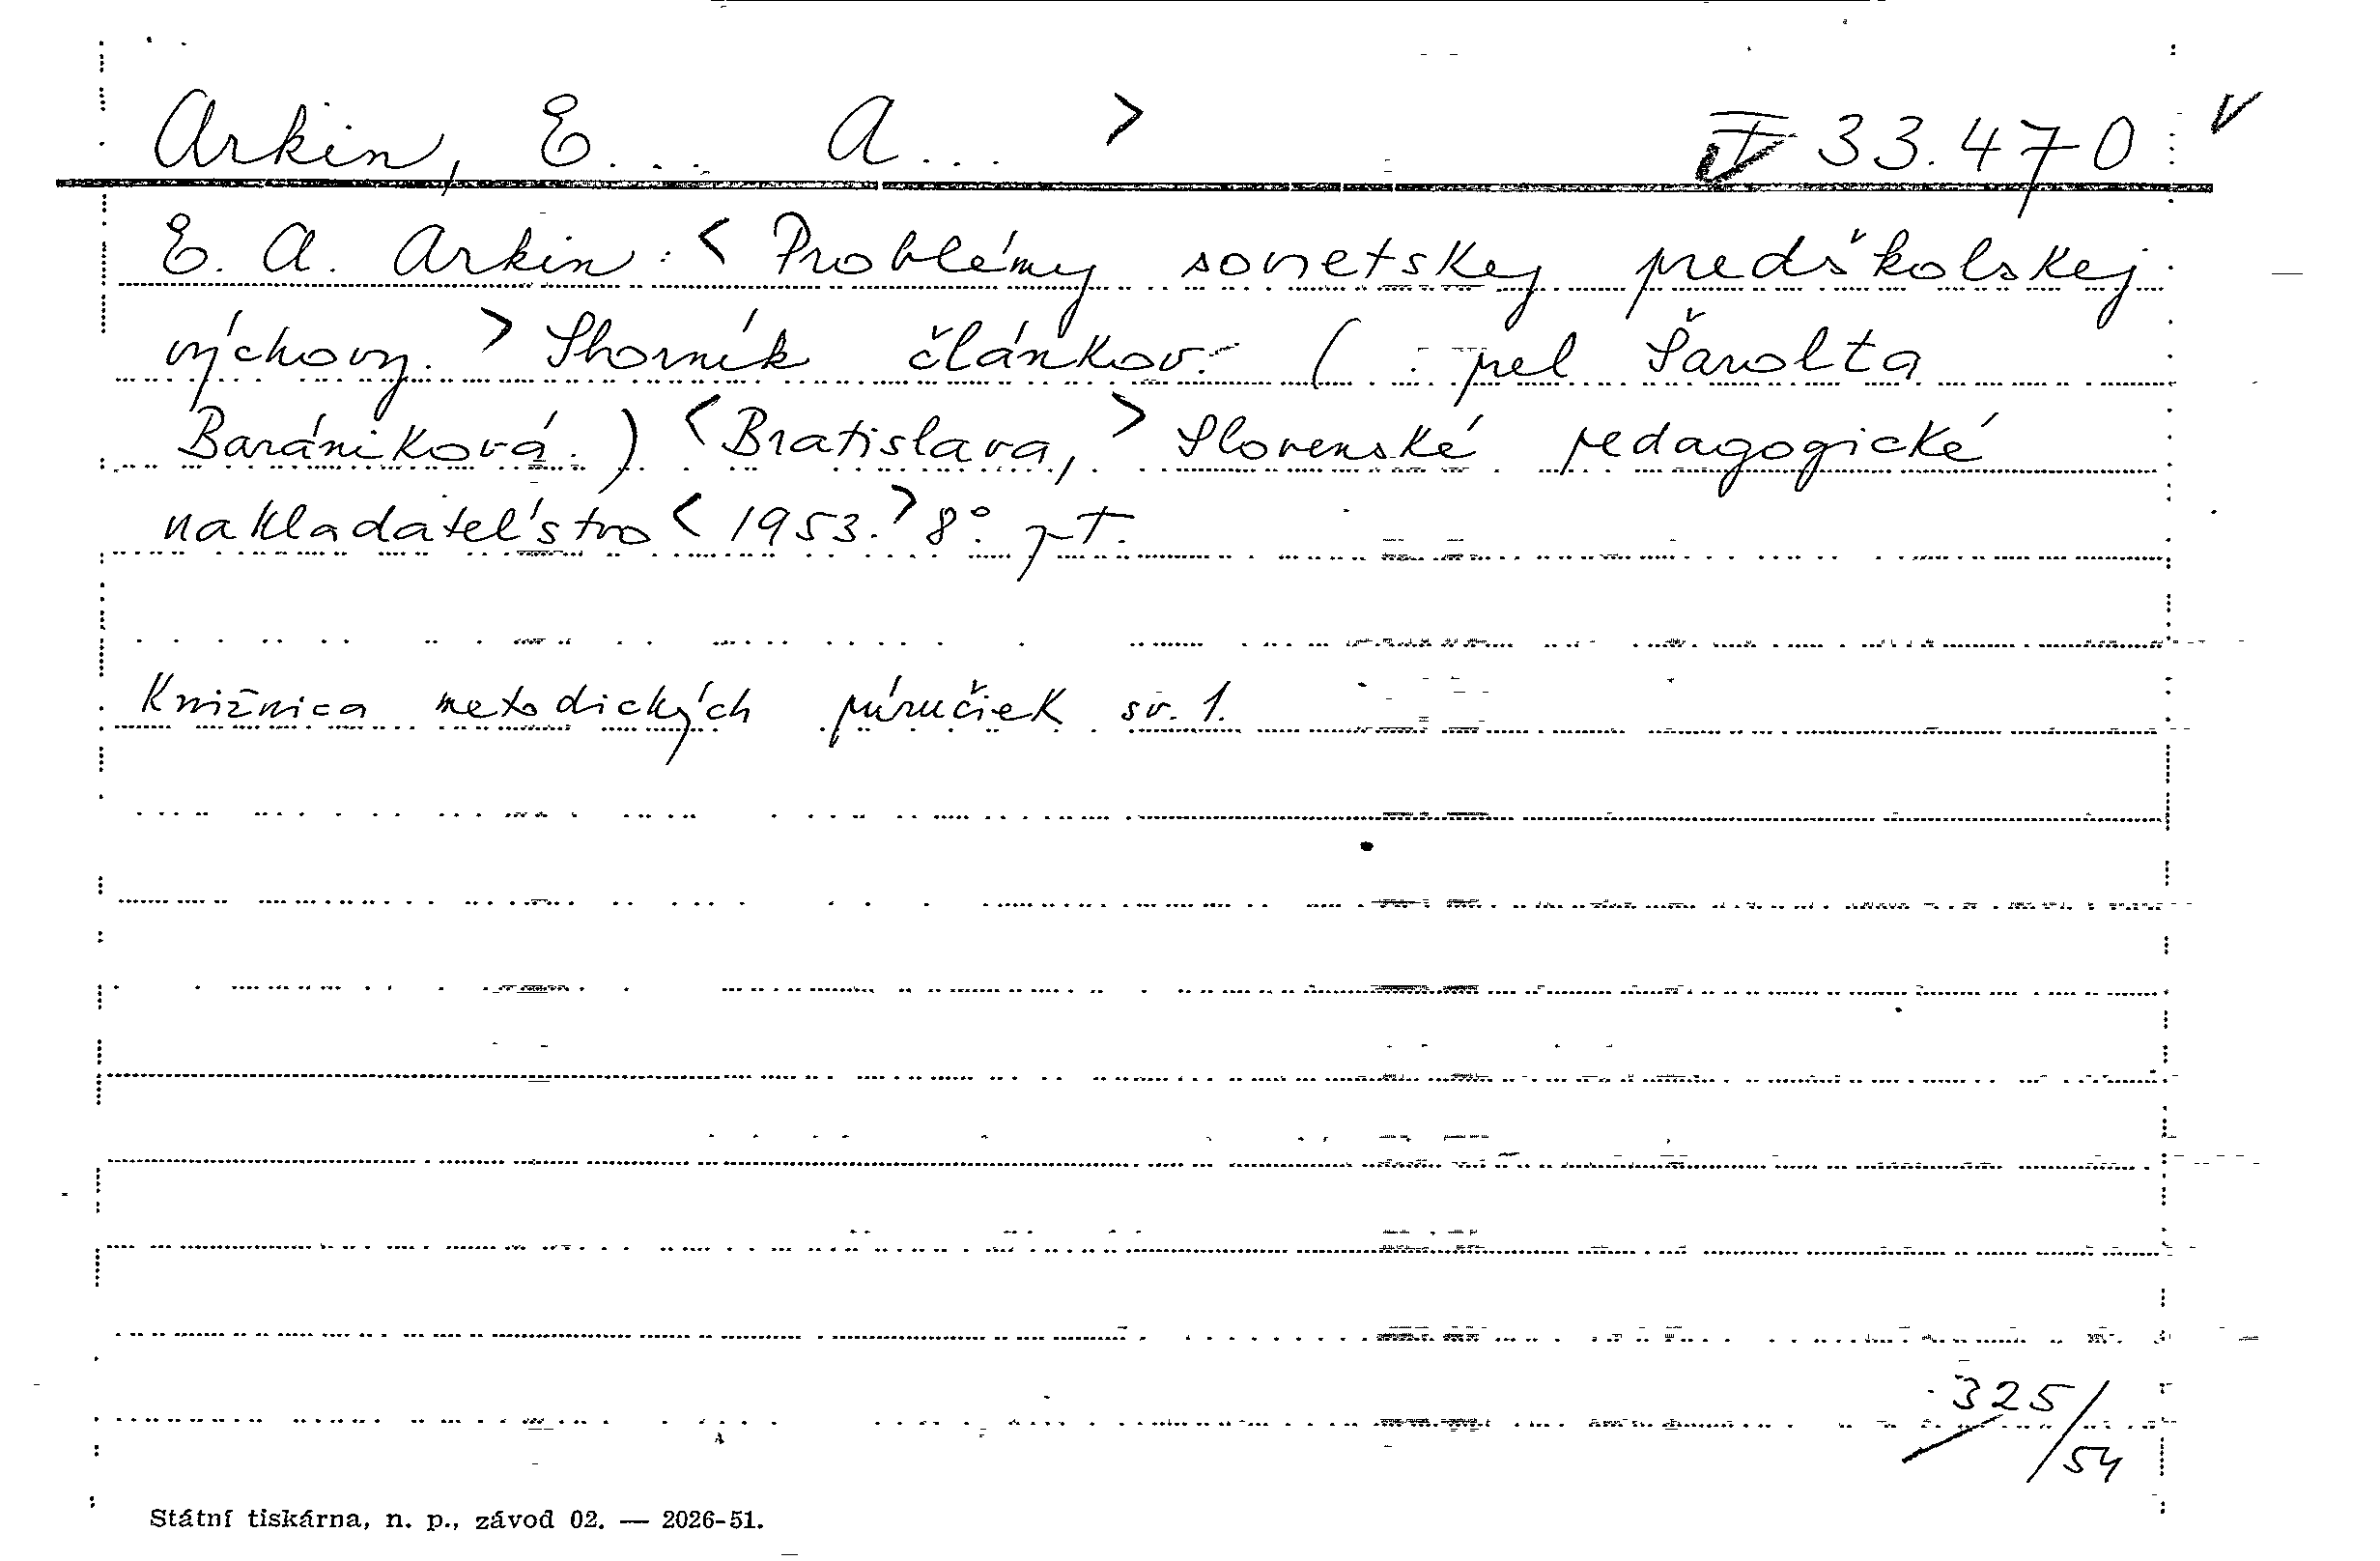 Arkin, E... A... > IV 33.470 v
E. A. Arkin: < Problémy sovietskej predškolskej
výchovy. > Sborník článkov. ( prel Šarolta
Barániková.) < Bratislava, > Slovenské pedagogické
nakladateľstvo < 1953. > 8°.
Knižnica metodických príručiek sv. 1.
325/54
Státní tiskárna, n. p., závod 02. — 2026-51.